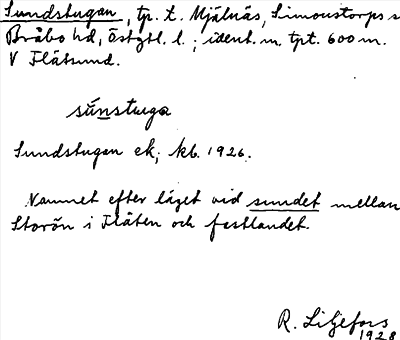 Sundstugan, tpr. t. Mjälnäs, Simonstorps s
Bråbo hd, Östgtl. l.; ident. m. tpt. 600 m.
V Flätsund.
sún̲stuga
Sundstugan ek, kb. 1926.
Namnet efter läget vid sundet mellan
Storön i Fläten och fastlandet.
R. Liljefors
1928